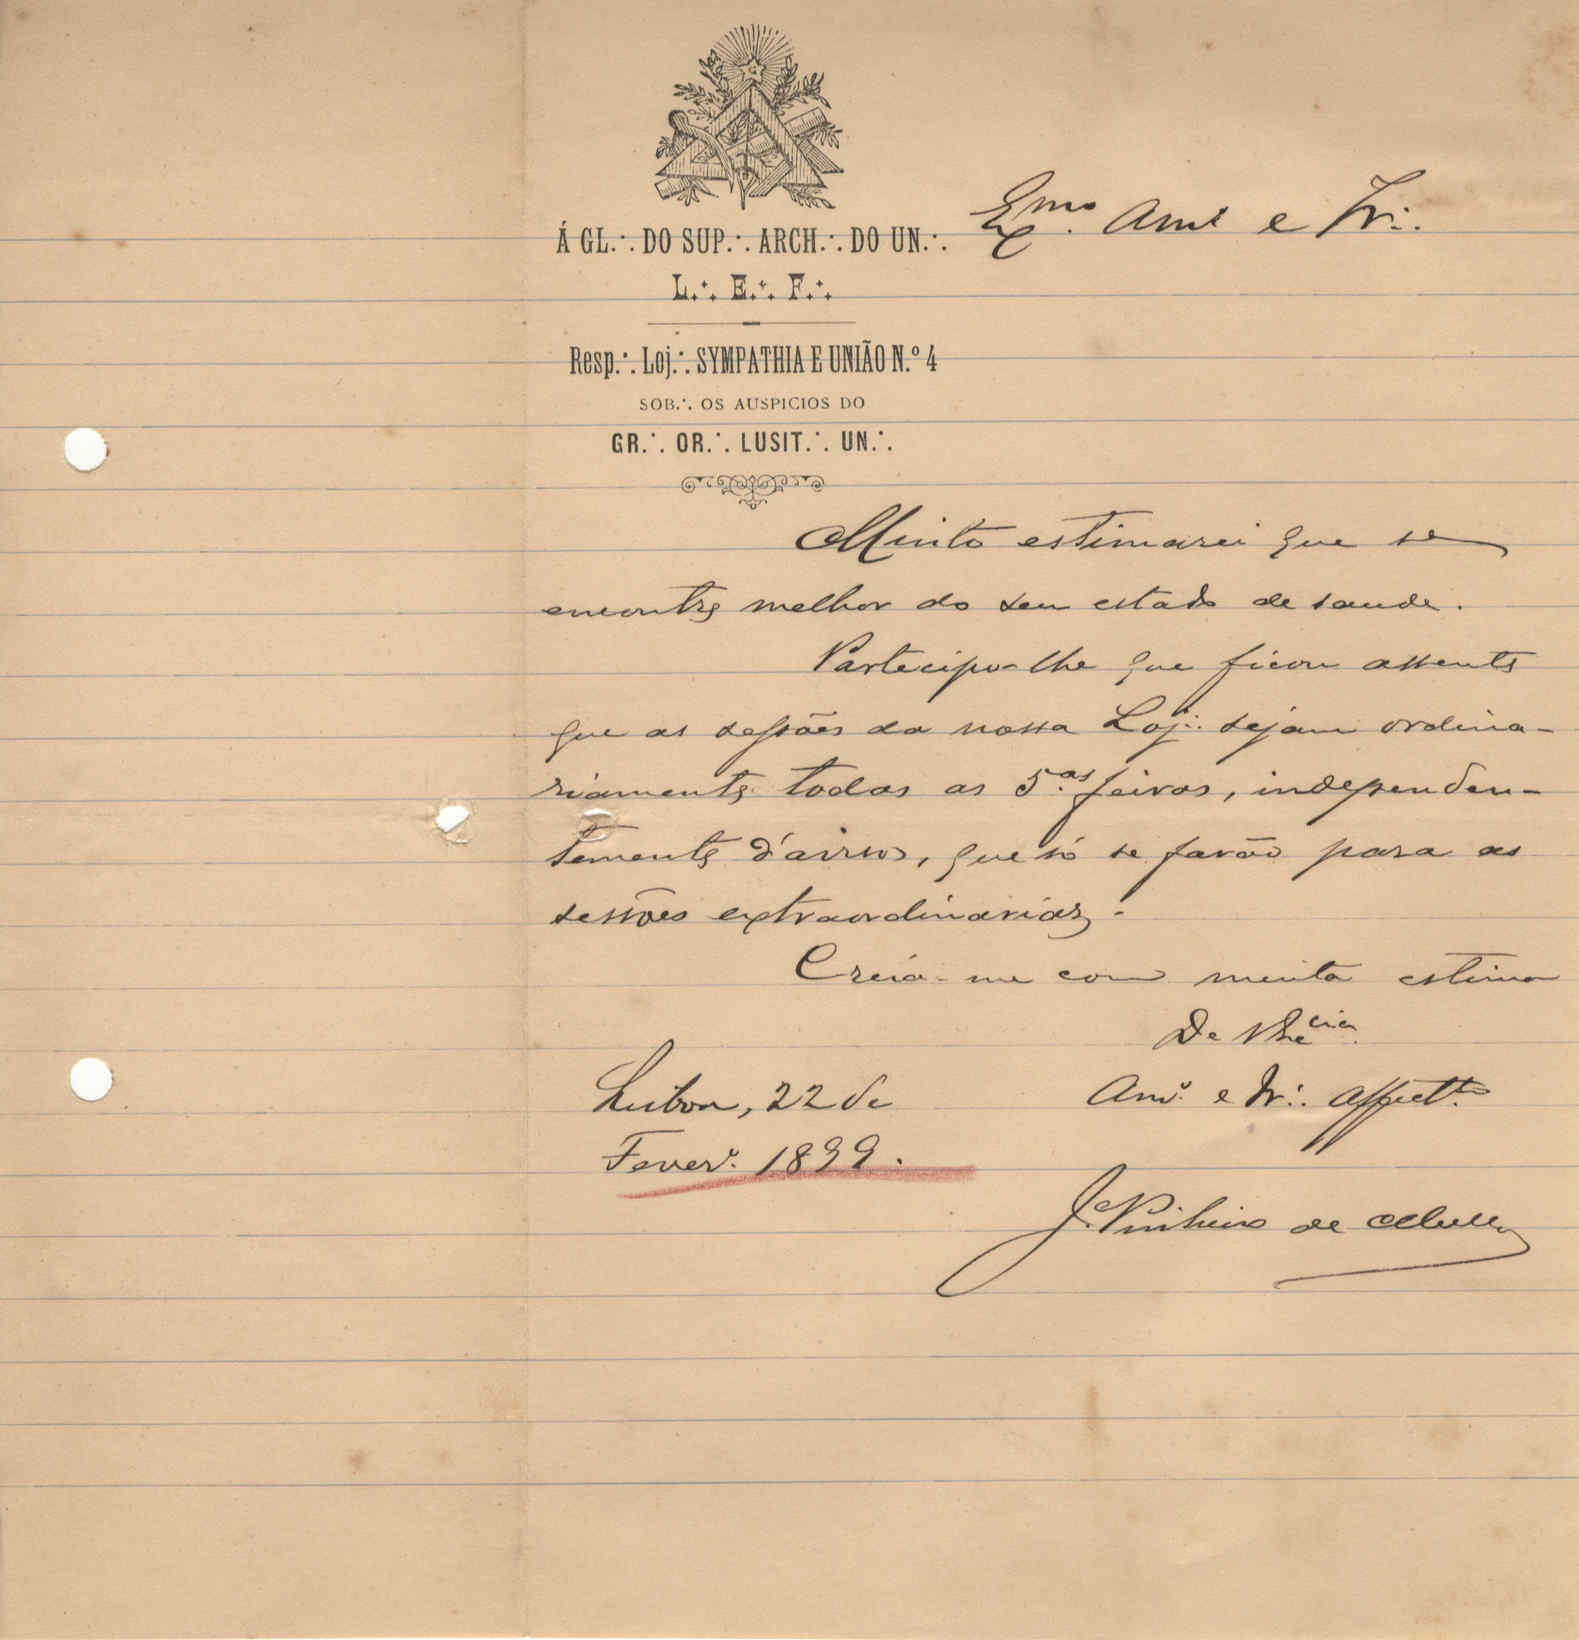 Á GL.·. DO SUP.·. ARCH.·. DO UN.·.
L.·. E.·. F.·.
Resp.·. Loj.·. SYMPATHIA E UNIÃO N.º 4
SOB.·. OS AUSPICIOS DO
GR.·. OR.·. LUSIT.·. UN.·.
Exmo. Amº e Ir.·.
Muito estimarei que se
encontre melhor do seu estado de saude.
Partecipo-lhe que ficou assente
que as sessões da nossa Loj.·. sejam ordina-
riamente todas as 5.as feiras, independen-
temente d'avisos, que só se farão para as
sessões extraordinarias.
Creia-me com muita estima
De V. Excia.
Amº. e Ir.·. affectº.
Lisboa, 22 de
Feverº. 1899.
J. Pinheiro de Mello